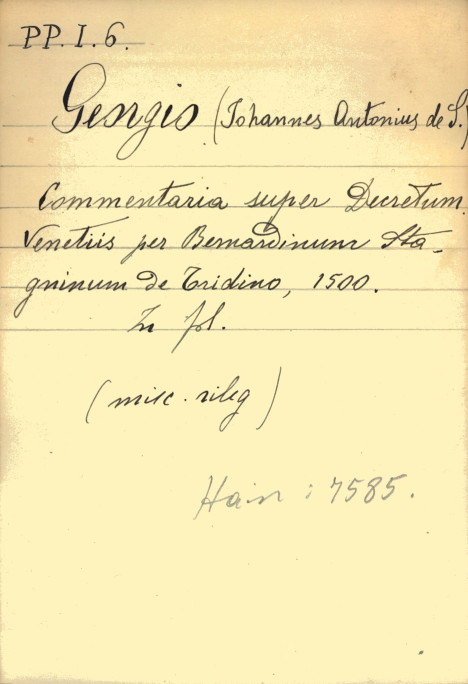 PP. I. 6.
Georgio (Iohannes Antonius de S.)
Commentaria super Decretum.
Venetiis per Bernardinum Sta-
gninum de Tridino, 1500.
In fol.
(misc. rileg)
Hain: 7585.